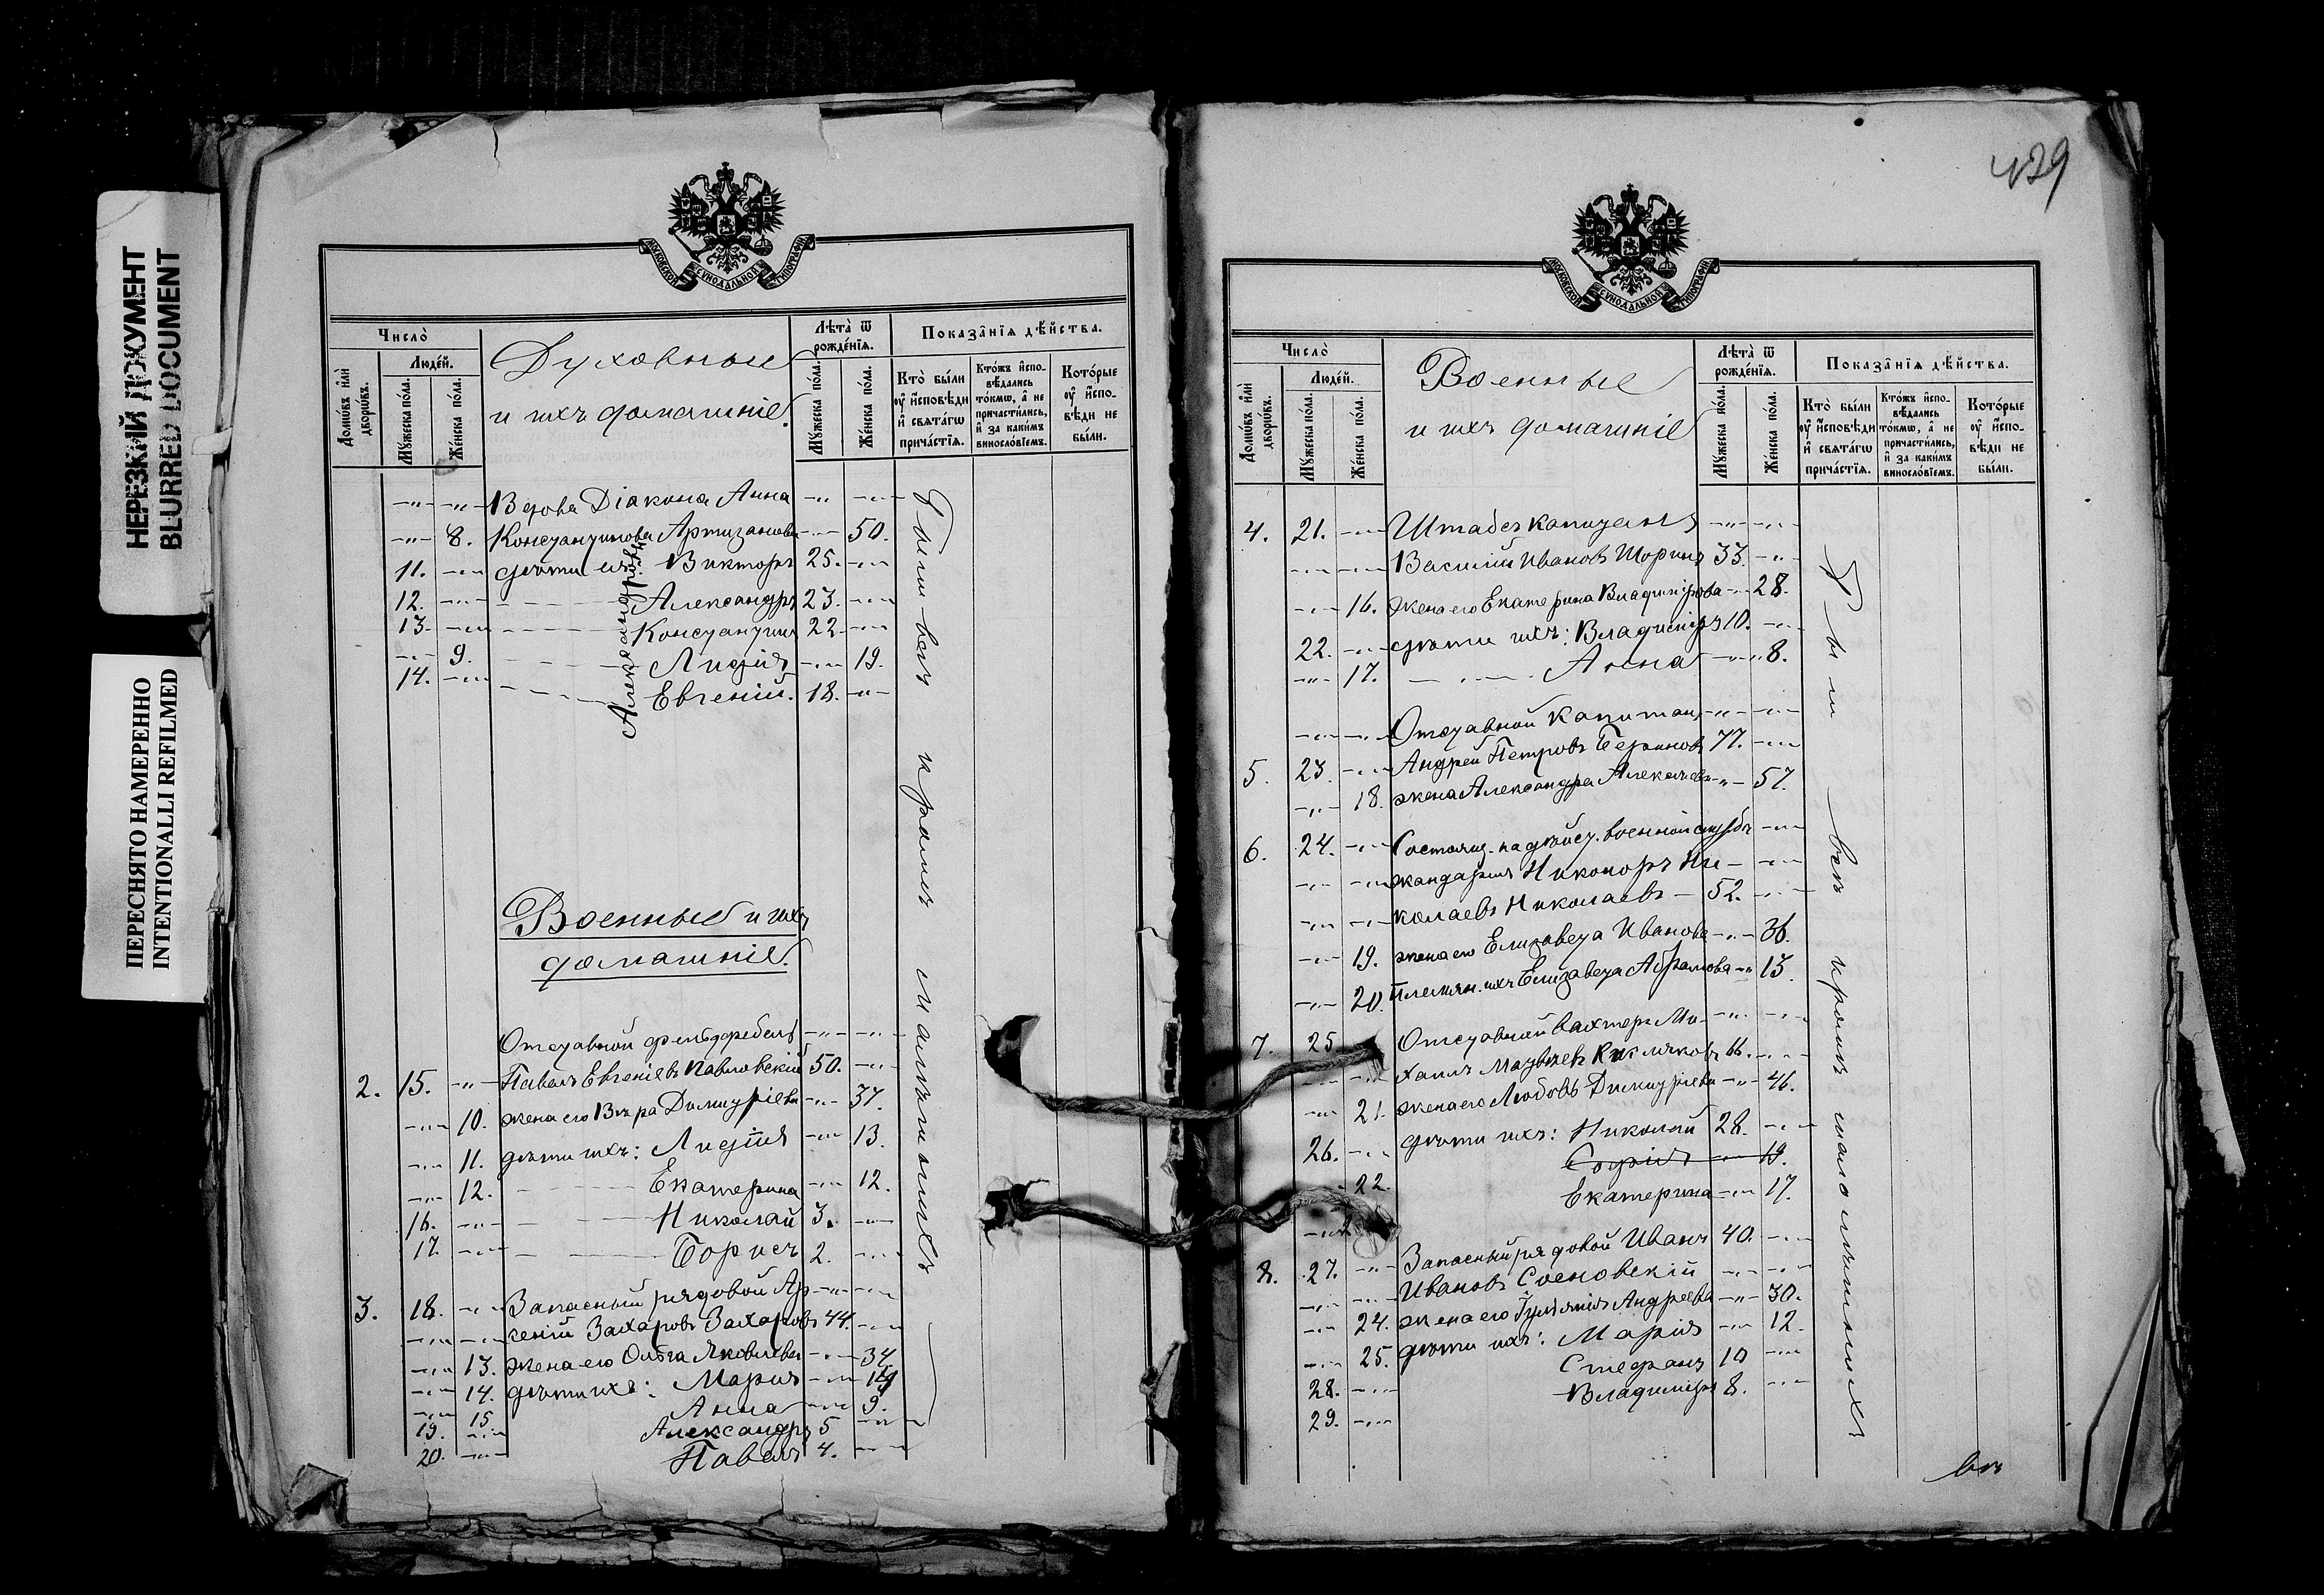 НЕРЕЗКИЙ ДОКУМЕНТ
BLURRED DOCUMENT
ПЕРЕСНЯТО НАМЕРЕННО
INTENTIONALLI REFILMED
МОСКОВСКОЙ СѴНОДАЛЬНОЙ ТИПОГРАФІИ
Число̀
Домѡ́въ и҆лѝ дворѡ́въ.
Люде́й.
Мꙋ́жеска по́ла.
Же́нска по́ла.
Духовные
и ихъ домашніе.
Лѣта̀ ѿ рожде́нїѧ.
Мꙋ́жеска по́ла.
Же́нска по́ла.
Показа̑нїѧ дѣ́йства.
Кто̀ бы́ли оу҆ и҆сповѣди и҆ свѧта́гѡ прича́стїѧ.
Кто́жъ и҆спо-вѣ́дались то́кмѡ, а҆ не причасти́лись, и҆ за каки́мъ винословїемъ.
Кото́рые оу҆ и҆спо-вѣди не бы́ли.
—"— —"— Вдова Діакона Анна —"— —"—
—"— 8. Константинова Артизанова —"— 50.
11. —"— дѣти ея: Викторъ 25. —"—
12. —"— Александръ 23. —"—
13. —"— Константинъ 22. —"—
—"— 9. Лидія —"— 19.
14. —"— Евгеній. 18. —"—
Александровы
Были всѣ кромѣ малѣтнихъ
Военные и ихъ
домашніе.
Отставной фельдфебель —"— —"—
2. 15. —"— Павелъ Евгеніевъ Павловскій 50. —"—
—"— 10. жена его Вѣра Димитріева —"— 37.
—"— 11. дѣти ихъ: Лидія —"— 13.
—"— 12. Екатерина —"— 12.
16. —"— Николай 3. —"—
17. —"— Борисъ 2. —"—
3. 18. —"— Запасный рядовой Ар- —"— —"—
—"— —"— сеній Захаровъ Захаровъ 44. —"—
—"— 13. жена его Ольга Яковлева —"— 34
—"— 14. дѣти ихъ: Марія —"—
—"— 15. Анна —"— 9.
19. —"— Александръ 5 —"—
20. —"— Павелъ 4. —"—
429
МОСКОВСКОЙ СѴНОДАЛЬНОЙ ТИПОГРАФІИ
Число̀
Домѡ́въ и҆лѝ дворѡ́въ.
Люде́й.
Мꙋ́жеска по́ла.
Же́нска по́ла.
Военные
и ихъ домашніе
Лѣта̀ ѿ рожде́нїѧ.
Мꙋ́жеска по́ла.
Же́нска по́ла.
Показа̑нїѧ дѣ́йства.
Кто̀ бы́ли оу҆ и҆сповѣди и҆ свѧта́гѡ прича́стїѧ.
Кто́жъ и҆спо-вѣ́дались то́кмѡ, а҆ не причасти́лись, и҆ за каки́мъ винословїемъ.
Кото́рые оу҆ и҆спо-вѣди не бы́ли.
4. 21. —"— Штабсъ капитанъ —"— —"—
—"— —"— Василій Ивановъ Шоринъ 33. —"—
—"— 16. жена его Екатерина Владимірова —"— 28.
22. —"— дѣти ихъ: Владиміръ 10. —"—
—"— 17. Анна —"— 8.
—"— —"— Отставной капитанъ —"— —"—
5. 23. —"— Андрей Петровъ 77. —"—
—"— 18. жена Александра Алексѣева —"— 57.
6. 24. —"— Состоящ. на дѣйст. военной службѣ —"—
—"— —"— жандармъ Никоноръ Ни- —"—
—"— —"— колаевъ Николаевъ — 52. —"—
—"— 19. жена его Елизавета Иванова —"— 36.
—"— 20. племян. ихъ Елизавета Абрамова —"— 13.
7. 25 Отставной вахтеръ Ми- —"— —"—
—"— —"— хаилъ Матвѣевъ 66. —"—
—"— 21. жена его Любовь Димитріева —"— 46.
26. —"— дѣти ихъ: Николай 28. —"—
22. Софія —"— 19.
—"— Екатерина —"— 17.
8. 27. —"— Запасный рядовой Иванъ 40. —"—
—"— —"— Ивановъ Сосновскій —"— —"—
—"— 24. жена его Іуліанія Андреева —"— 30.
—"— 25. дѣти ихъ: Марія —"— 12.
28. —"— Стефанъ 10 —"—
29. —"— Владиміръ 8. —"—
Были всѣ кромѣ малолѣтнихъ